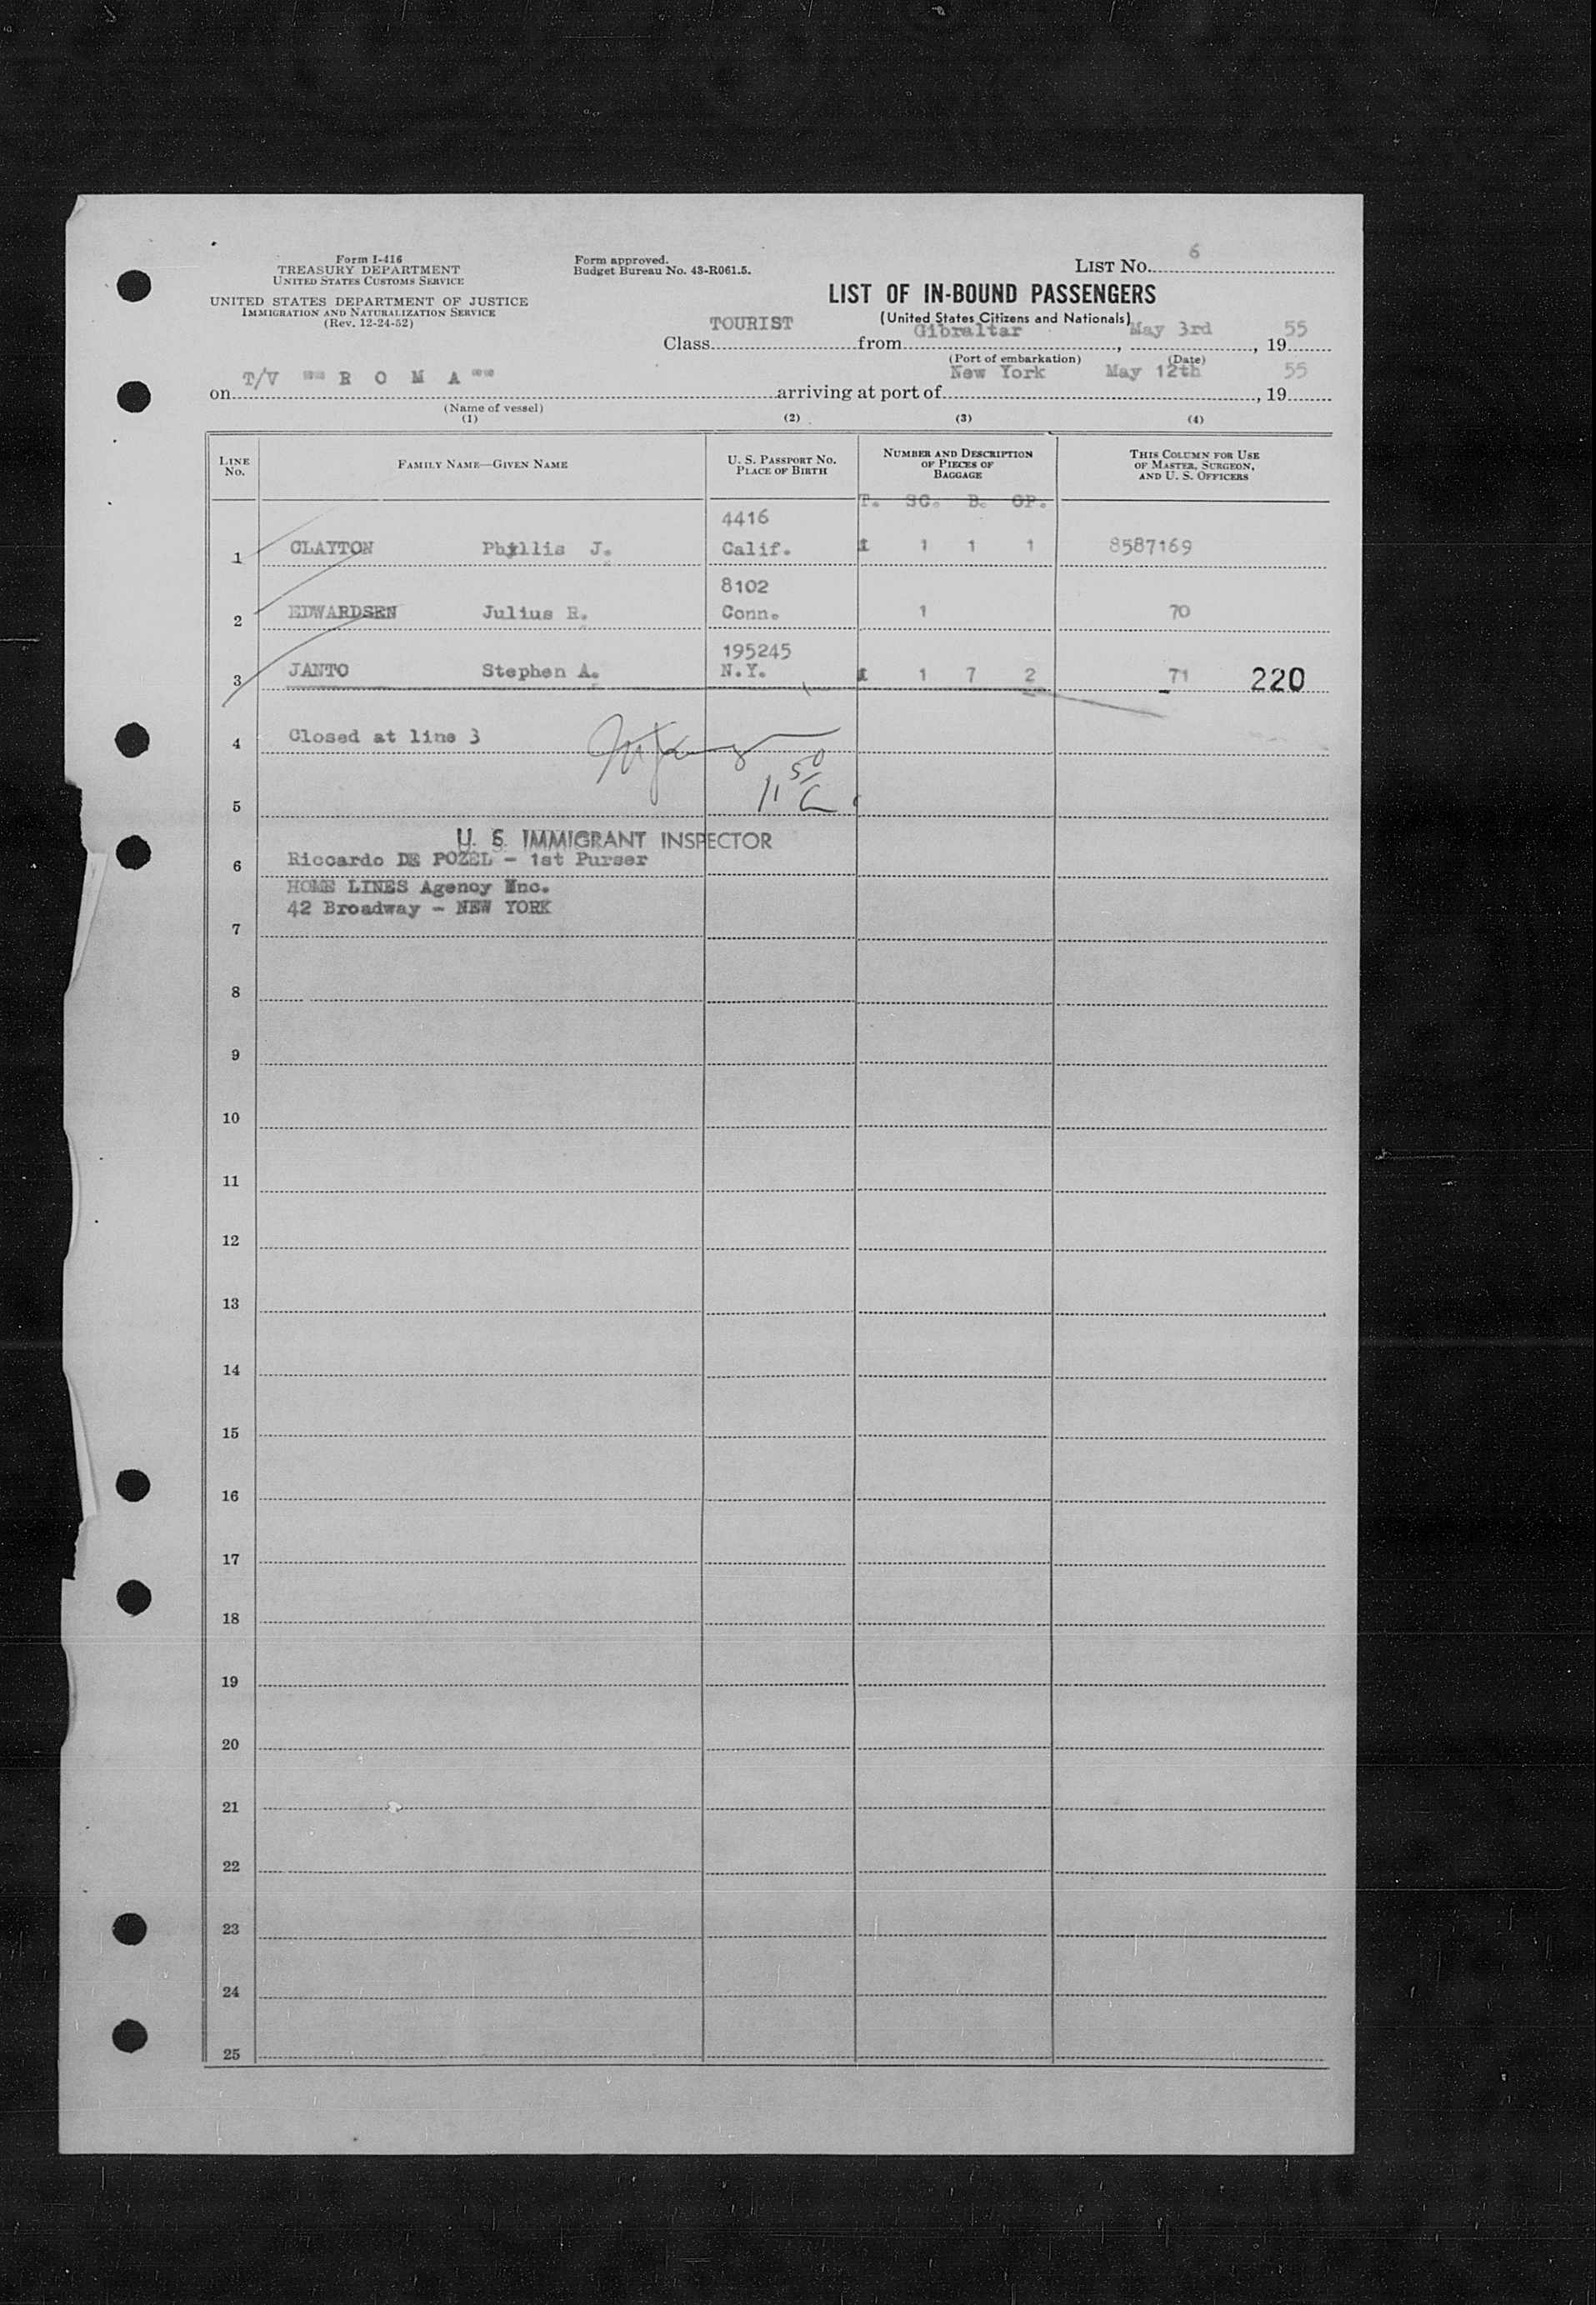 Form I-416
TREASURY DEPARTMENT
UNITED STATES CUSTOMS SERVICE
UNITED STATES DEPARTMENT OF JUSTICE
IMMIGRATION AND NATURALIZATION SERVICE
(Rev. 12-24-52)
Form approved.
Budget Bureau No. 43-R061.5.
LIST NO. 6
LIST OF IN-BOUND PASSENGERS
(United States Citizens and Nationals)
Class TOURIST from Gibraltar, May 3rd, 1955
(Port of embarkation) (Date)
on T/V "" R O M A "" arriving at port of New York May 12th, 1955
(Name of vessel)
(1) (2) (3) (4)
LINE NO. FAMILY NAME—GIVEN NAME U. S. PASSPORT NO. PLACE OF BIRTH NUMBER AND DESCRIPTION OF PIECES OF BAGGAGE THIS COLUMN FOR USE OF MASTER, SURGEON, AND U. S. OFFICERS
T. SC. B. GP.
4416
1 CLAYTON Phyllis J. Calif. 1 1 1 1 8587169
8102
2 EDWARDSEN Julius R. Conn. 1 70
195245
3 JANTO Stephen A. N.Y. 1 1 7 2 71 220
4 Closed at line 3
5
U. S. IMMIGRANT INSPECTOR
6 Riccardo DE POZEL - 1st Purser
HOME LINES Agency Inc.
42 Broadway - NEW YORK
7
8
9
10
11
12
13
14
15
16
17
18
19
20
21
22
23
24
25